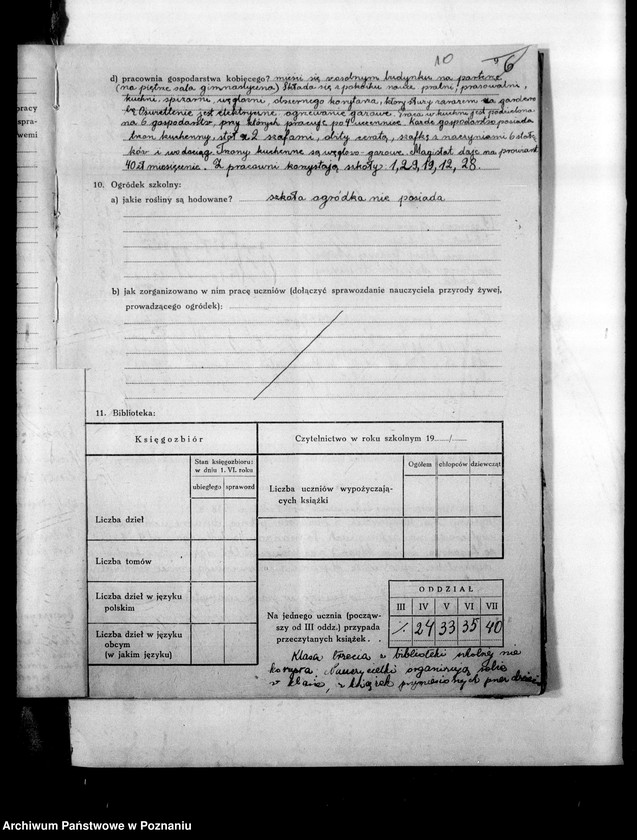 10
6
d) pracownia gospodarstwa kobiecego? mieści się w osobnym budynku na parterze
(na piętrze sala gimnastyczna) Składa się z pokoiku nauki prania, prasowalni,
kuchni, spiżarni, węglarni, obszernego korytarza, który służy zarazem za
Oświetlenie jest elektryczne, ogrzewanie gazowe. Praca w kuchni jest podzielona
na 6 gospodarstw, przy których pracuje po 4 uczennice. Każde gospodarstwo posiada
tron kuchenny, stół z 2 szafami, obity ceratą, szafkę z naczyniami 6 stoł
ków i wodociąg. Trony kuchenne są węglowo-gazowe. Magistrat daje na prowiant
40 zł miesięcznie. Z pracowni korzystają szkoły: 1, 29, 19, 12, 28.
10. Ogródek szkolny:
a) jakie rośliny są hodowane? szkoła ogródka nie posiada
b) jak zorganizowano w nim pracę uczniów (dołączyć sprawozdanie nauczyciela przyrody żywej,
prowadzącego ogródek):
pracy
spra-
wemi
11. Biblioteka:
Księgozbiór
Stan księgozbioru:
w dniu 1. VI. roku
ubiegłego sprawozd
Liczba dzieł
Liczba tomów
Liczba dzieł w języku
polskim
Liczba dzieł w języku
obcym
(w jakim języku)
Czytelnictwo w roku szkolnym 19...../.....
Ogółem chłopców dziewcząt
Liczba uczniów wypożyczają-
cych książki
Na jednego ucznia (począw-
szy od III oddz.) przypada
przeczytanych książek.
ODDZIAŁ
III IV V VI VII
·/. 24 33 35 40
Klasa trzecia z biblioteki szkolnej nie
korzysta. Nauczycielki organizują sobie
w klasie, z książek przyniesionych przez dzieci
Archiwum Państwowe w Poznaniu